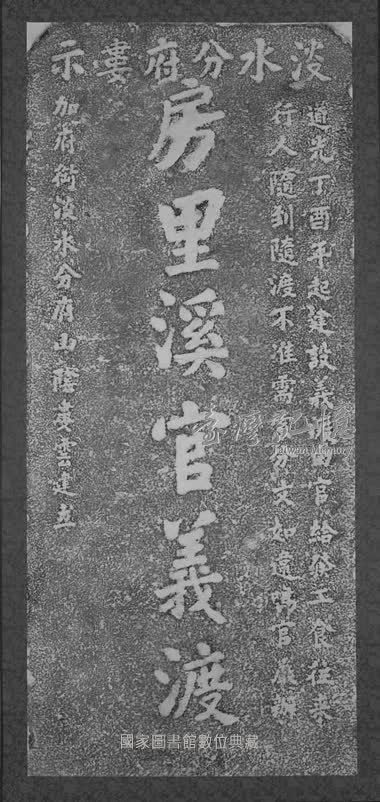 淡水分府婁示
道光丁酉年起建設義渡由官給發工食往來
行人隨到隨渡不准需索分文如違鳴官嚴辦
房里溪官義渡
加府銜淡水分府山陰婁雲建立
臺灣記憶
Taiwan Memory
國家圖書館數位典藏